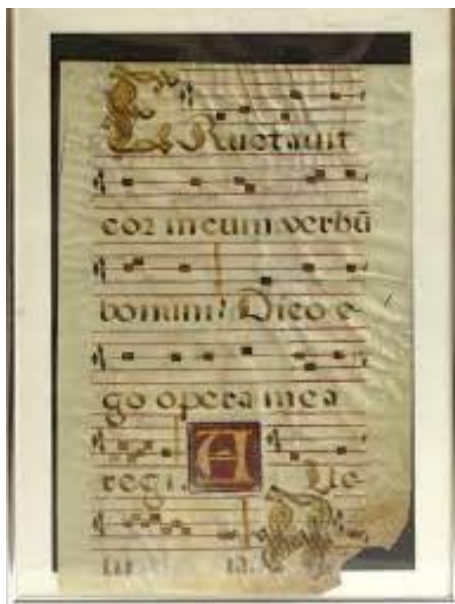 ERuctauit
cor meum verbū
bonum: Dico e-
go opera mea
regi. Alle
lu ia.